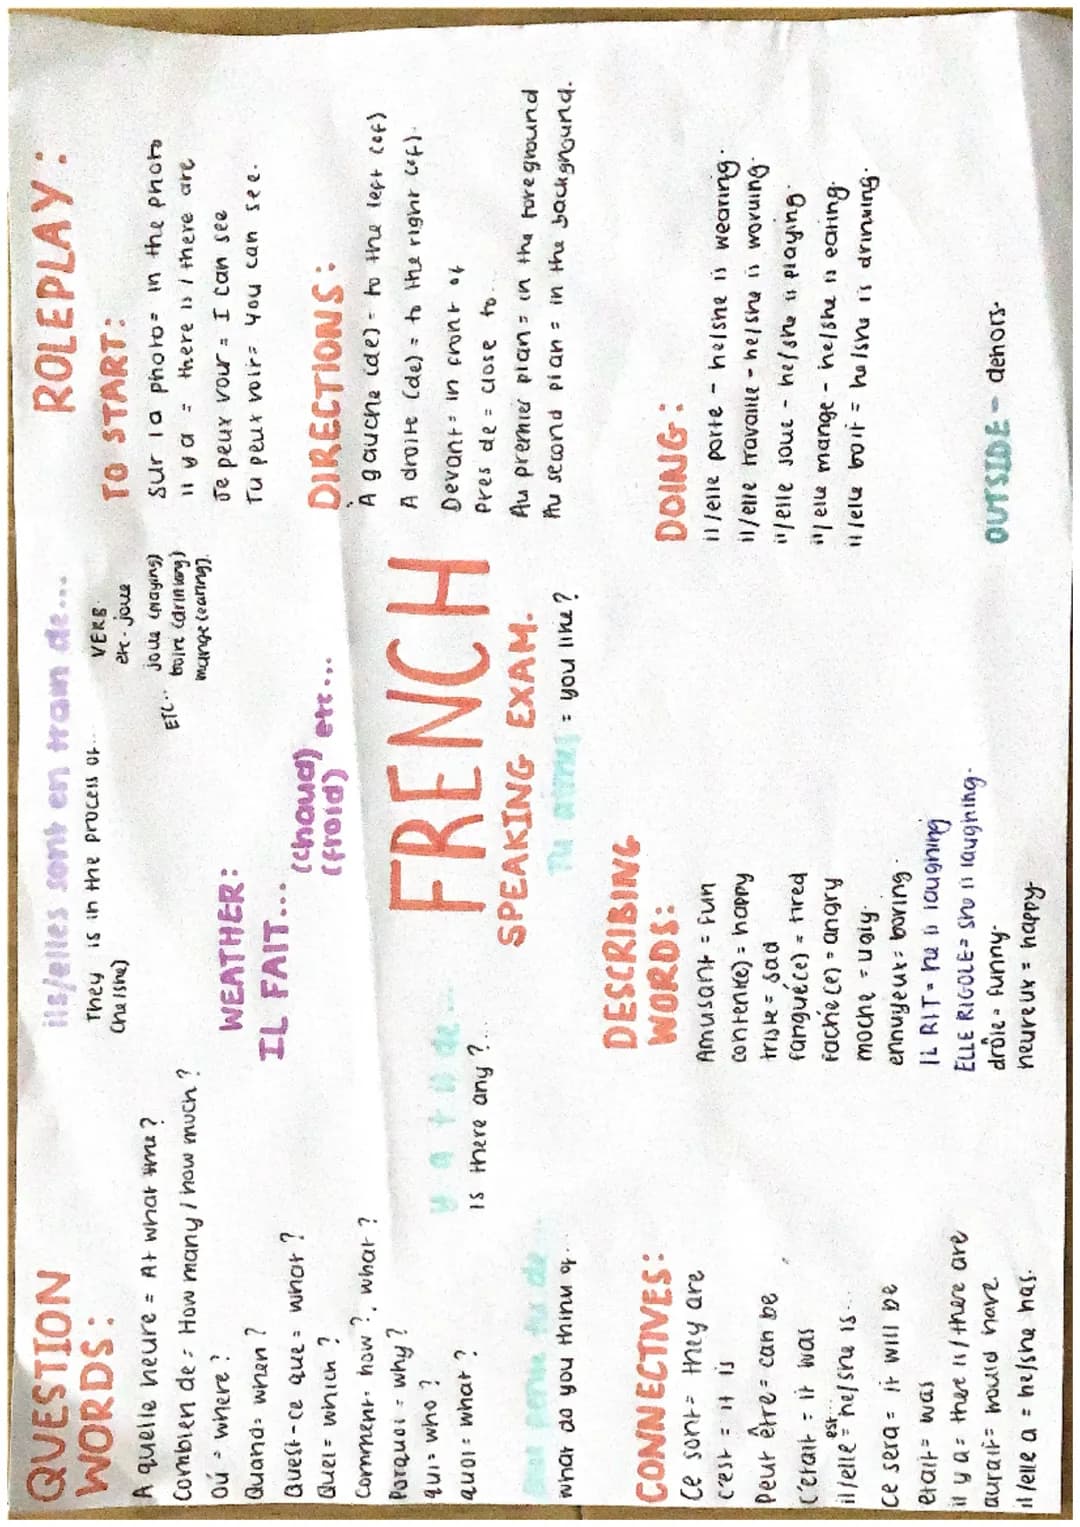 QUESTION
WORDS:
A quelle heure = At what time?
Combien de = How many / how much?
Oú = where?
Quand = when?
Quest-ce que = what?
Quel = which?
Comment = how?, what?
Porquoi = why?
qui = who?
quoi = what?
ils/elles sont en train de...
They is in the process of...
(he/she)
VERB.
etc. joue
ETC.. joue (playing)
boire (drinking)
mange (eating).
WEATHER:
IL FAIT... (chaud) etc...
(froid)
ROLEPLAY:
TO START:
Sur la photo = in the photo
il y a = there is / there are
Je peux voir = I can see
Tu peux voir = you can see.
DIRECTIONS:
À gauche (de) = to the left (of)
A droite (de) = to the right (of).
Devant = in front of
Pres de = close to...
Au premier plan = in the foreground
Au second plan = in the background.
FRENCH
SPEAKING EXAM.
y a t il de...
is there any?...
Tu aimes = you like?
de...
what do you think of...
CONNECTIVES:
Ce sont = they are
c'est = it is
Peut être = can be
C'etait = it was
il/elle est... = he/she is...
Ce sera = it will be
etait = was
il y a = there is / there are
aurait = would have
il/elle a = he/she has.
DESCRIBING
WORDS:
Amusant = fun
content(e) = happy
triste = sad
fatigué(e) = tired
faché(e) = angry
moche = ugly.
ennuyeux = boring.
IL RIT = he is laughing
ELLE RIGOLE = she is laughing.
drôle = funny.
heureux = happy
DOING:
il/elle porte - he/she is wearing.
il/elle travaille - he/she is working.
il/elle joue - he/she is playing.
il/elle mange - he/she is eating.
il/elle boit = he/she is drinking.
OUTSIDE - dehors.